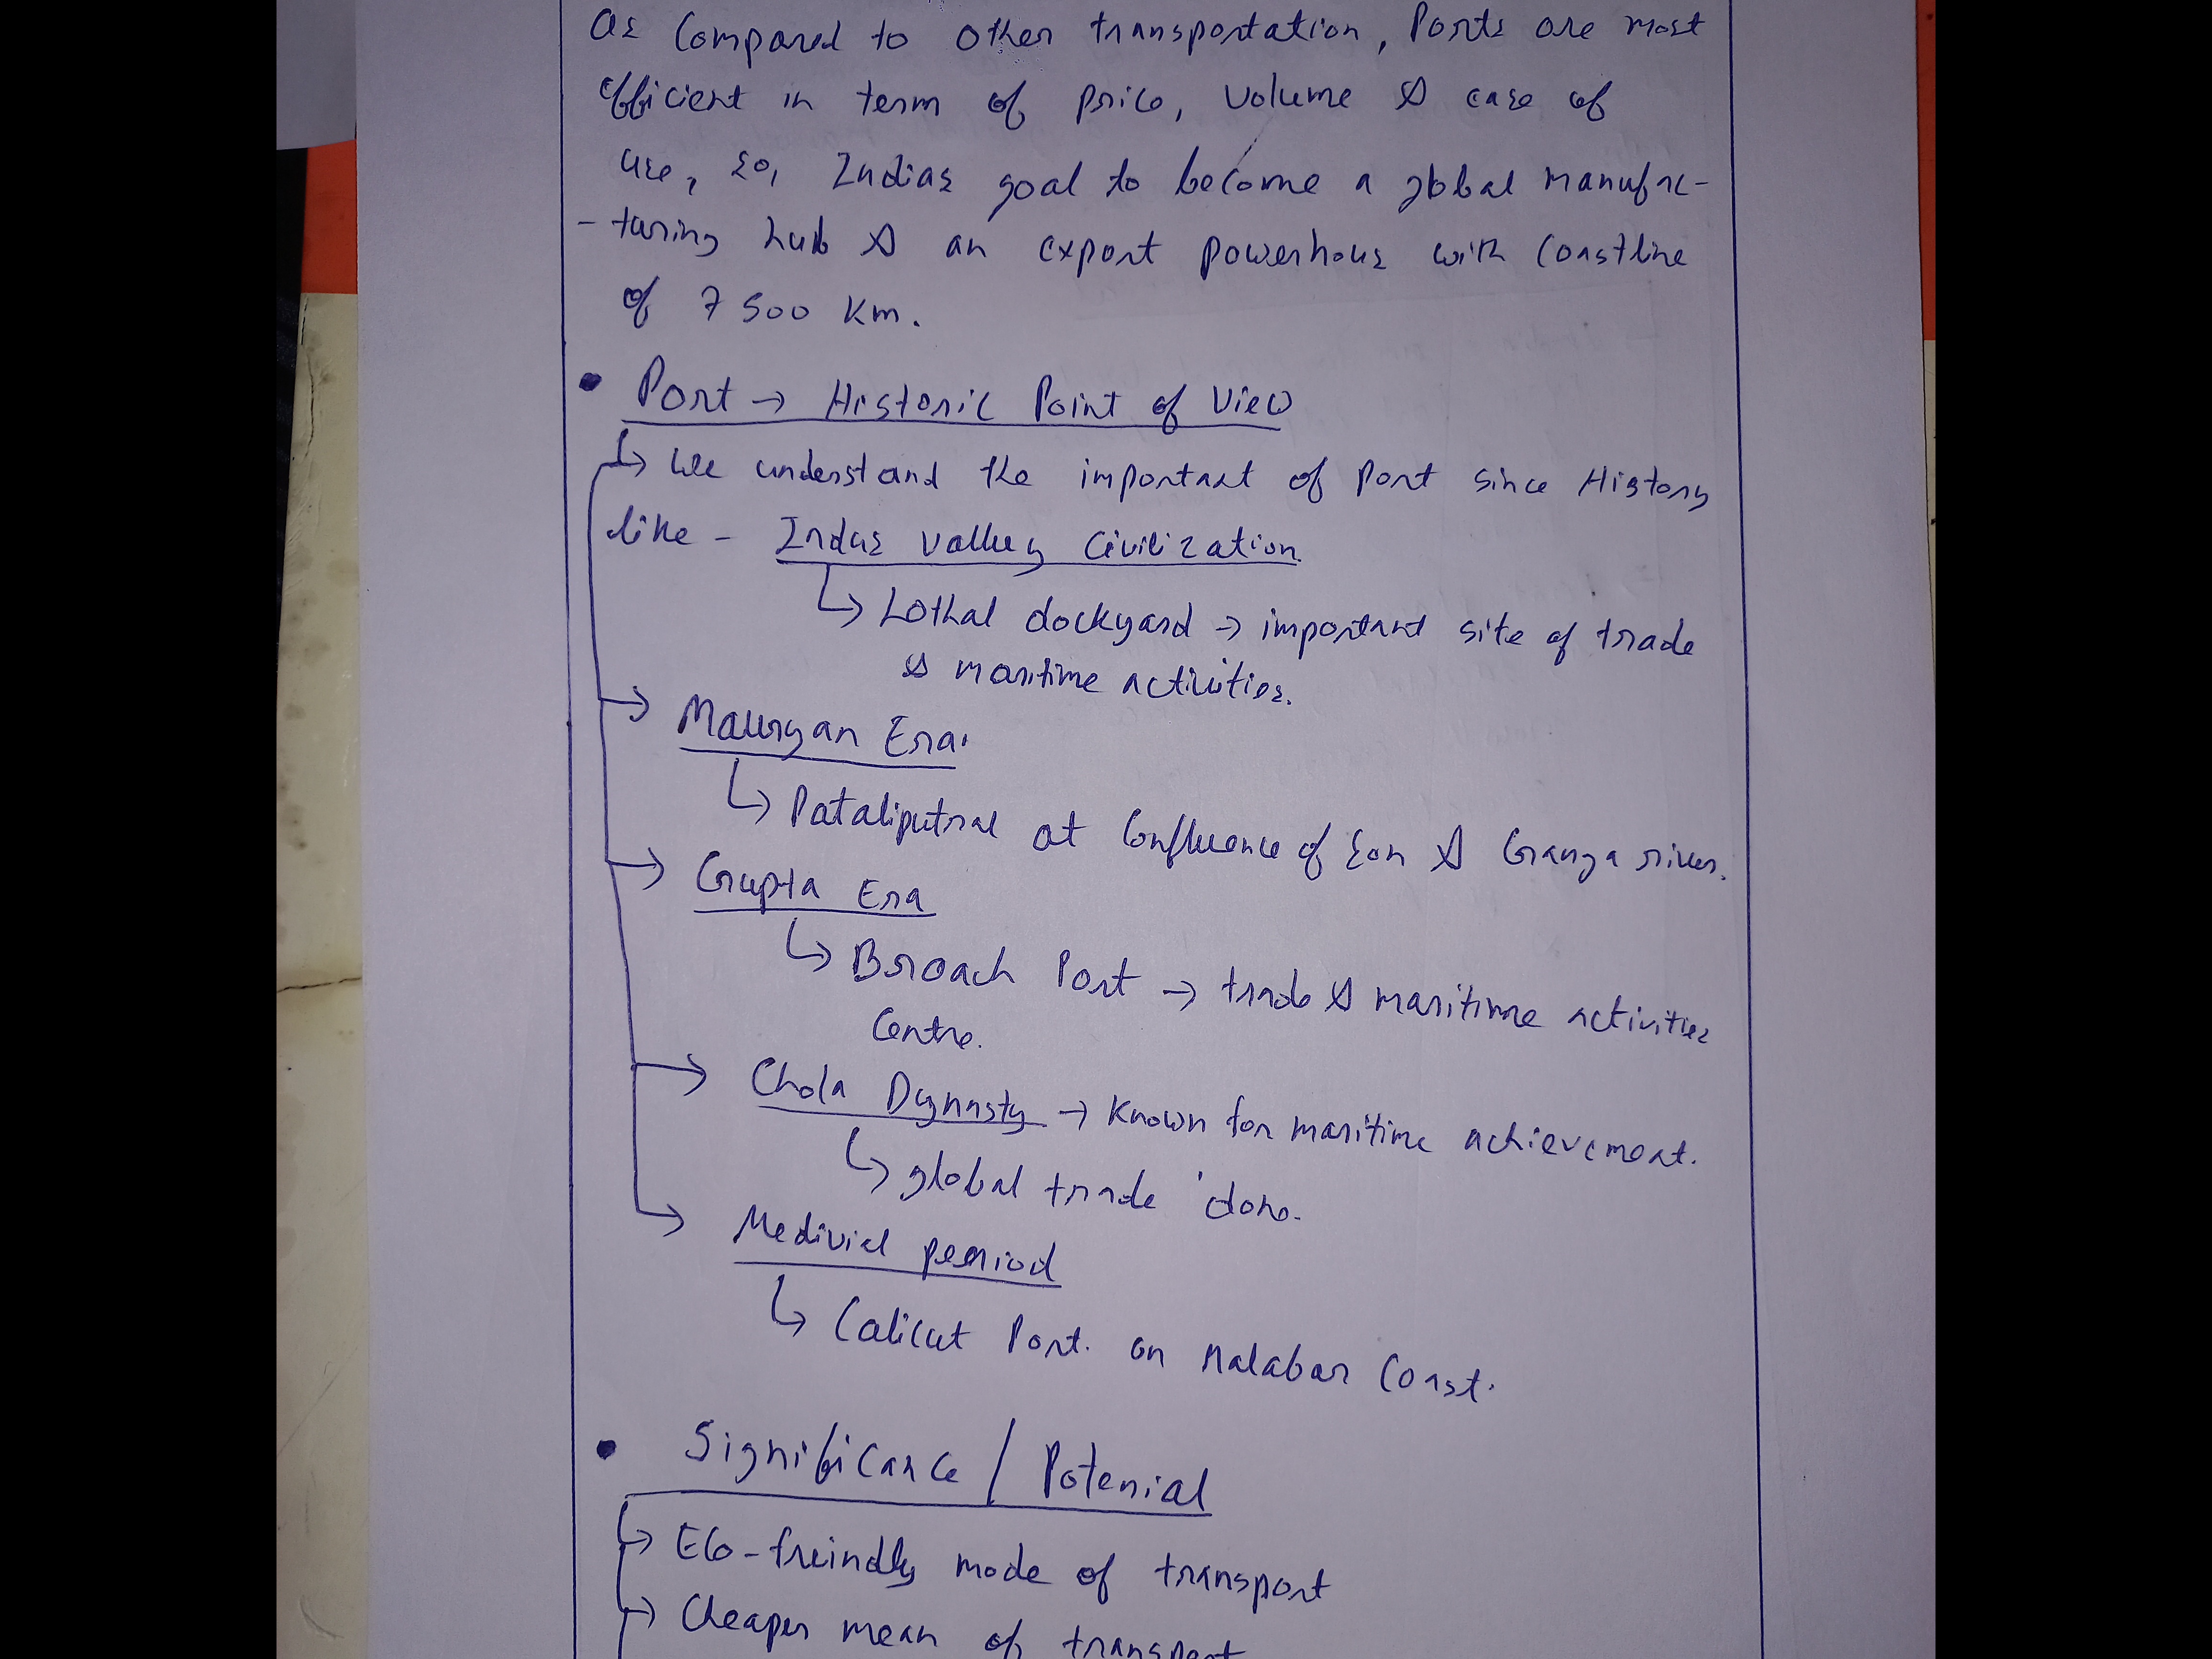 As Compared to other transportation, Ports are most
efficient in term of price, volume & ease of
use, so, Indias goal to become a global manufac-
-turing hub & an export powerhous with Coastline
of 7500 Km.
• Port → Historic Point of View
↳ We understand the important of Port since History
like - Indus Valley Civilization.
↳ Lothal dockyard → important site of trade
& maritime activities.
→ Mauryan Era.
↳ Pataliputral at Confluence of Son & Ganga river.
→ Gupta Era
↳ Broach Port → trade & maritime activities
Centre.
→ Chola Dynasty → Known for maritime achievement.
↳ global trade done.
→ Medivial period
↳ Calicut Port. on Malabar Coast.
• Significance / Potenial
↳ Eco-freindly mode of transport
→ Cheaper mean of transport